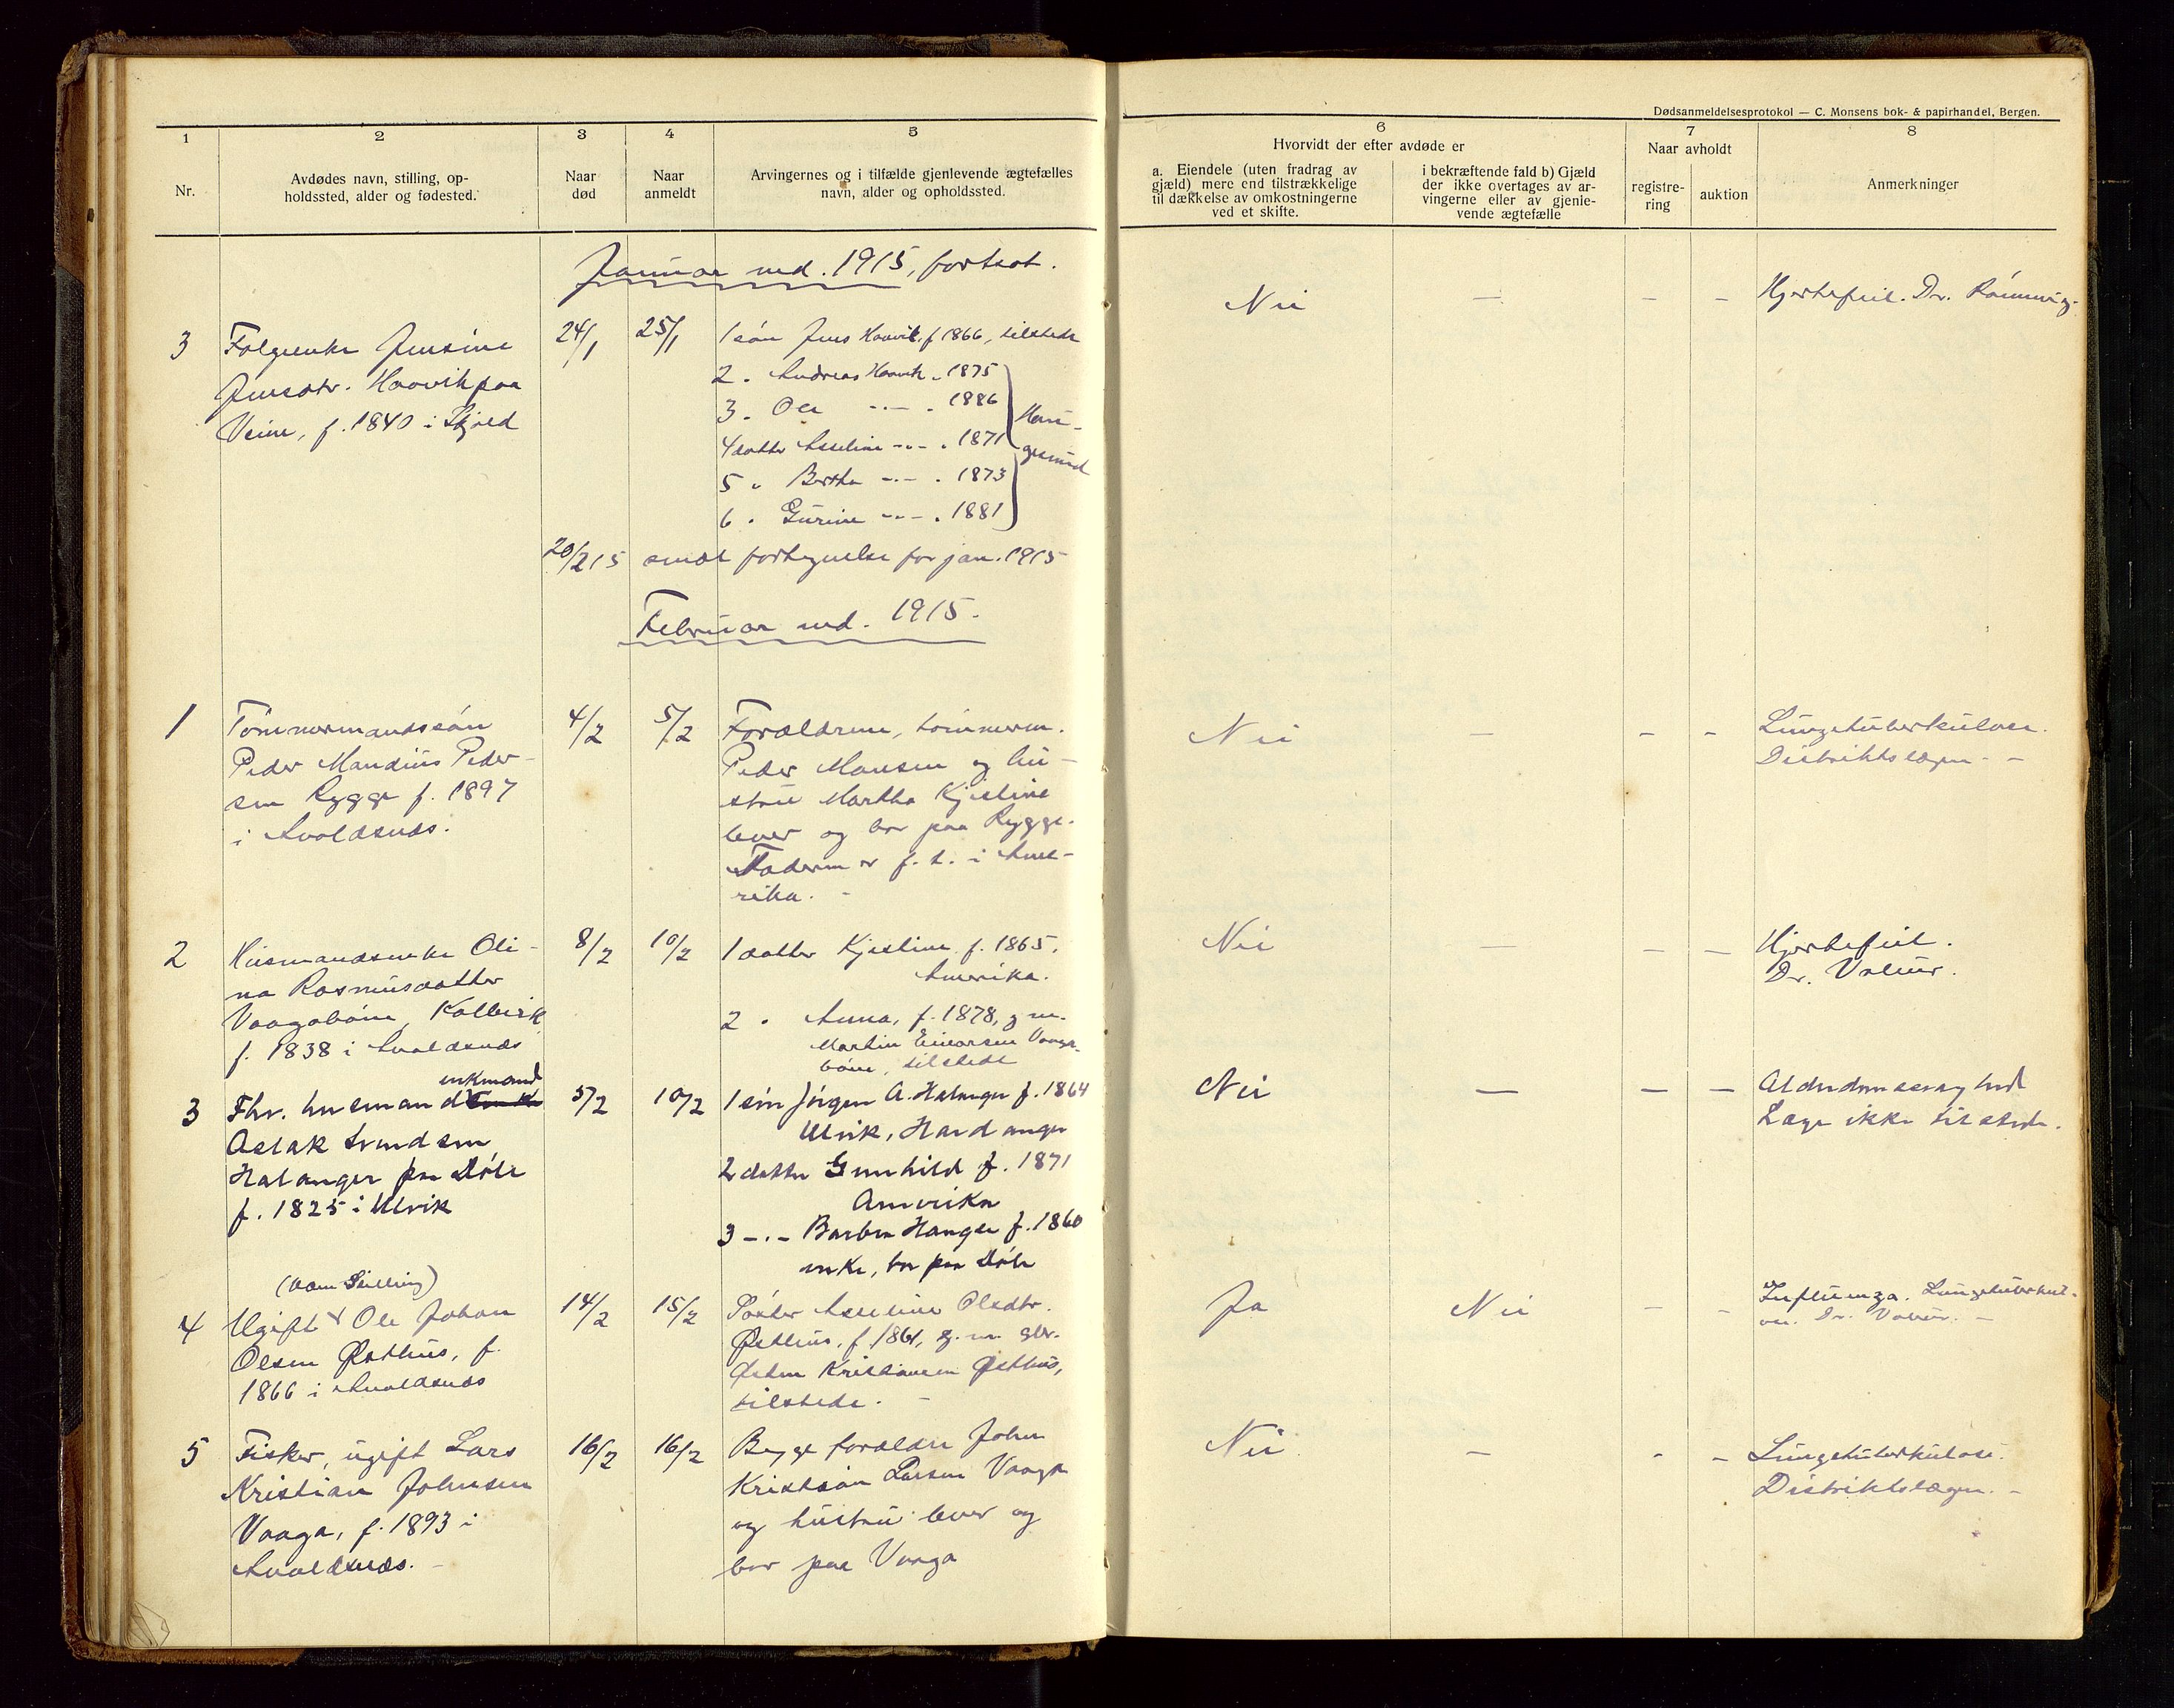 Dødsanmeldelsesprotokol — C. Monsens bok- & papirhandel, Bergen.
1 2 3 4 5 6 7 8
Nr.
Avdødes navn, stilling, op-
holdssted, alder og fødested.
Naar
død
Naar
anmeldt
Arvingernes og i tilfælde gjenlevende ægtefælles
navn, alder og opholdssted.
Hvorvidt der efter avdøde er
a. Eiendele (uten fradrag av
gjæld) mere end tilstrækkelige
til dækkelse av omkostningerne
ved et skifte.
i bekræftende fald b) Gjæld
der ikke overtages av ar-
vingerne eller av gjenle-
vende ægtefælle
Naar avholdt
registre-
ring
auktion
Anmerkninger
Januar md. 1915, fortsat.
3
Folgeenke Jensine
Jensdtr. Haavik paa
Veine, f. 1840 i Skjold
24/1
25/1
1 søn Jens Haavik, f 1866, tilstede
2 " Andreas Haavik " 1875
3 " Ole -"- " 1886
4 datter Asseline -"- " 1871
5 " Bertha -"- " 1873
6 " Gurine -"- " 1881
Hau-
gesund
Nei — — —
Hjertefeil. Dr. Rønnevig.
20/2 15 sendt fortegnelse for jan. 1915
Februar md. 1915.
1
Tømmermandssøn
Peder Mandius Peder-
sen Rygge f. 1897
i Avaldsnæs.
4/2
5/2
Forældrene, tømmerm.
Peder Monsen og hu-
stru Martha Kjestine
lever og bor paa Rygge.
Faderen er f. t. i Ame-
rika. -
Nei — — —
Lungetuberkulose.
Distriktslægen. -
2
Husmandsenke Oli-
na Rasmusdatter
Vaagabøne, Kolbeik,
f. 1838 i Avaldsnæs
8/2
10/2
1 datter Kjestine f. 1865.
Amerika.
2 " Anna, f. 1878, g. m.
Martin Einarsen Vaaga-
bøne, tilstede
Nei — — —
Hjertefeil.
Dr. Valeur.
3
enkmand
Fhv. husmand
Aslak Svendsen
Halanger paa Dåle
f. 1825 i Ulvik
5/2
10/2
1 søn Jörgen A. Halanger f. 1864
Ulvik, Hardanger
2 datter Gunhild f. 1871
Amerika
3 -"- Barbra Hangse f. 1860
enke, bor paa Dåle
Nei — — —
Alderdomssvaghed
Læge ikke tilstede.
4
(uden Stilling)
Ugift Ole Johan
Olsen Østhus, f.
1866 i Avaldsnæs
14/2
15/2
Søster Asseline Olsdtr.
Østhus, f. 1861, g. m. gbr.
Østen Kristiansen Østhus,
tilstede. -
Ja Nei - -
Influenza. Lungetuberkul-
ose. Dr. Valeur. -
5
Fisker, ugift Lars
Kristian Johnsen
Vaaga, f. 1893 i
Avaldsnæs. -
16/2
16/2
Begge forældre John
Kristian Larsen Vaage
og hustru lever og
bor paa Vaaga
Nei — - -
Lungetuberkulose.
Distriktslægen. -